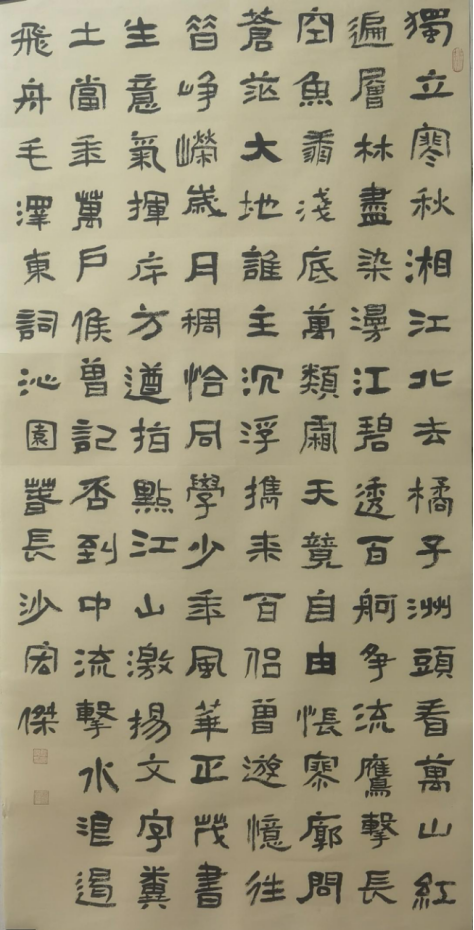 獨立寒秋湘江北去橘子洲頭看萬山紅
遍層林盡染漫江碧透百舸爭流鷹擊長
空魚翔淺底萬類霜天競自由悵寥廓問
蒼茫大地誰主沉浮攜來百侶曾遊憶往
昔崢嶸歲月稠恰同學少年風華正茂書
生意氣揮斥方遒指點江山激揚文字糞
土當年萬戶侯曾記否到中流擊水浪遏
飛舟毛澤東詞沁園春長沙宏傑